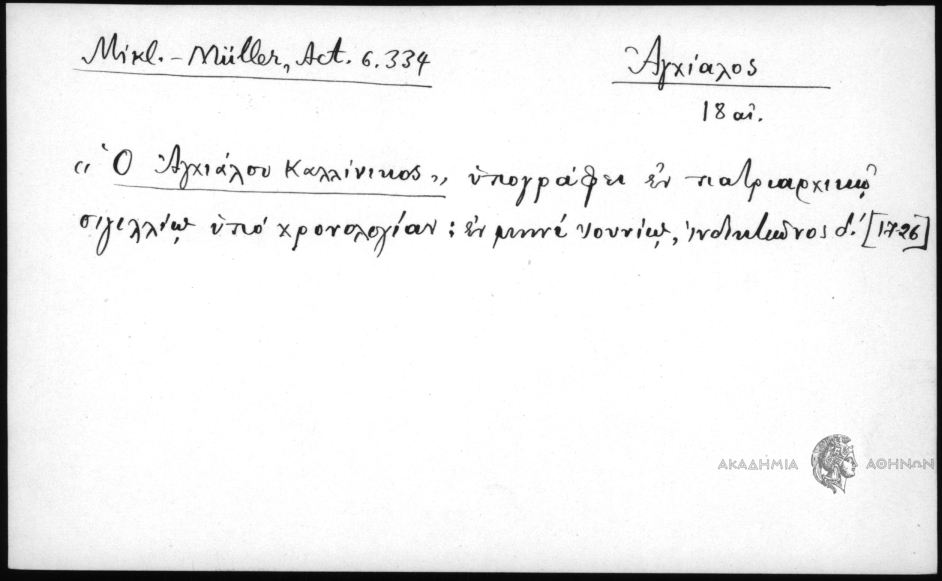 Mikl. - Müller, Act. 6.334
Ἀγχίαλος
18 αἰ.
"Ὁ Ἀγχιάλου Καλλίνικος", ὑπογράφει ἐν πατριαρχικῷ
σιγελλίῳ ὑπό χρονολογίαν: ἐν μηνί ἰουνίῳ, ἰνδικτιῶνος δ.' [1726]
ΑΚΑΔΗΜΙΑ ΑΘΗΝΩΝ